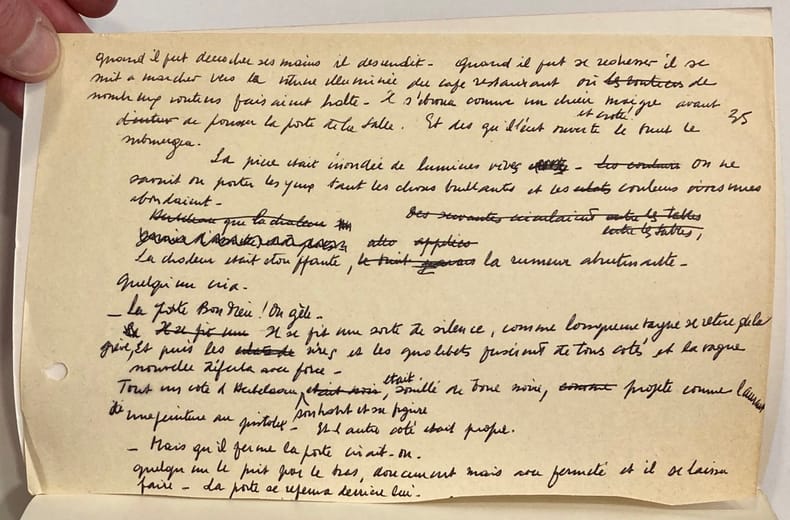 quand il put decrocher ses mains il descendit - quand il put se redresser il se
mit a marcher vers la vitrine illuminée du café restaurant où les routiers de
nombreux routiers faisaient halte - il s'ébroua comme un chien maigre avant
et crotté
35
d'entrer de pousser la porte de la salle. Et des qu'il l'eut ouverte le bruit le
submergea.
La pièce était inondée de lumières vives - les couleurs on ne
savait ou porter les yeux tant les choses brillantes et les éclats couleurs
abondaient -
Hebdeau que la chaleur
Des servantes circulaient entre les tables
entre les tables,
La chaleur était étouffante, le bruit la rumeur abrutissante -
quelqu'un cria -
- La porte Bon Dieu ! On gèle -
Il se fit une Il se fit une sorte de silence, comme lorsque une vague se retire de la
grève, Et puis les éclats de rires et les quolibets fusèrent de tous cotés et la vague
nouvelle déferla avec force -
Tout un coté d'Hebdeau était noir, était souillé de boue noire, comme projetée comme l'aurait
une peinture au pistolet - son habit et sa figure
Et l'autre coté était propre.
- Mais qu'il ferme la porte criait-on.
quelqu'un le prit par le bras, doucement mais avec fermeté et il se laissa
faire - La porte se referma derrière lui -